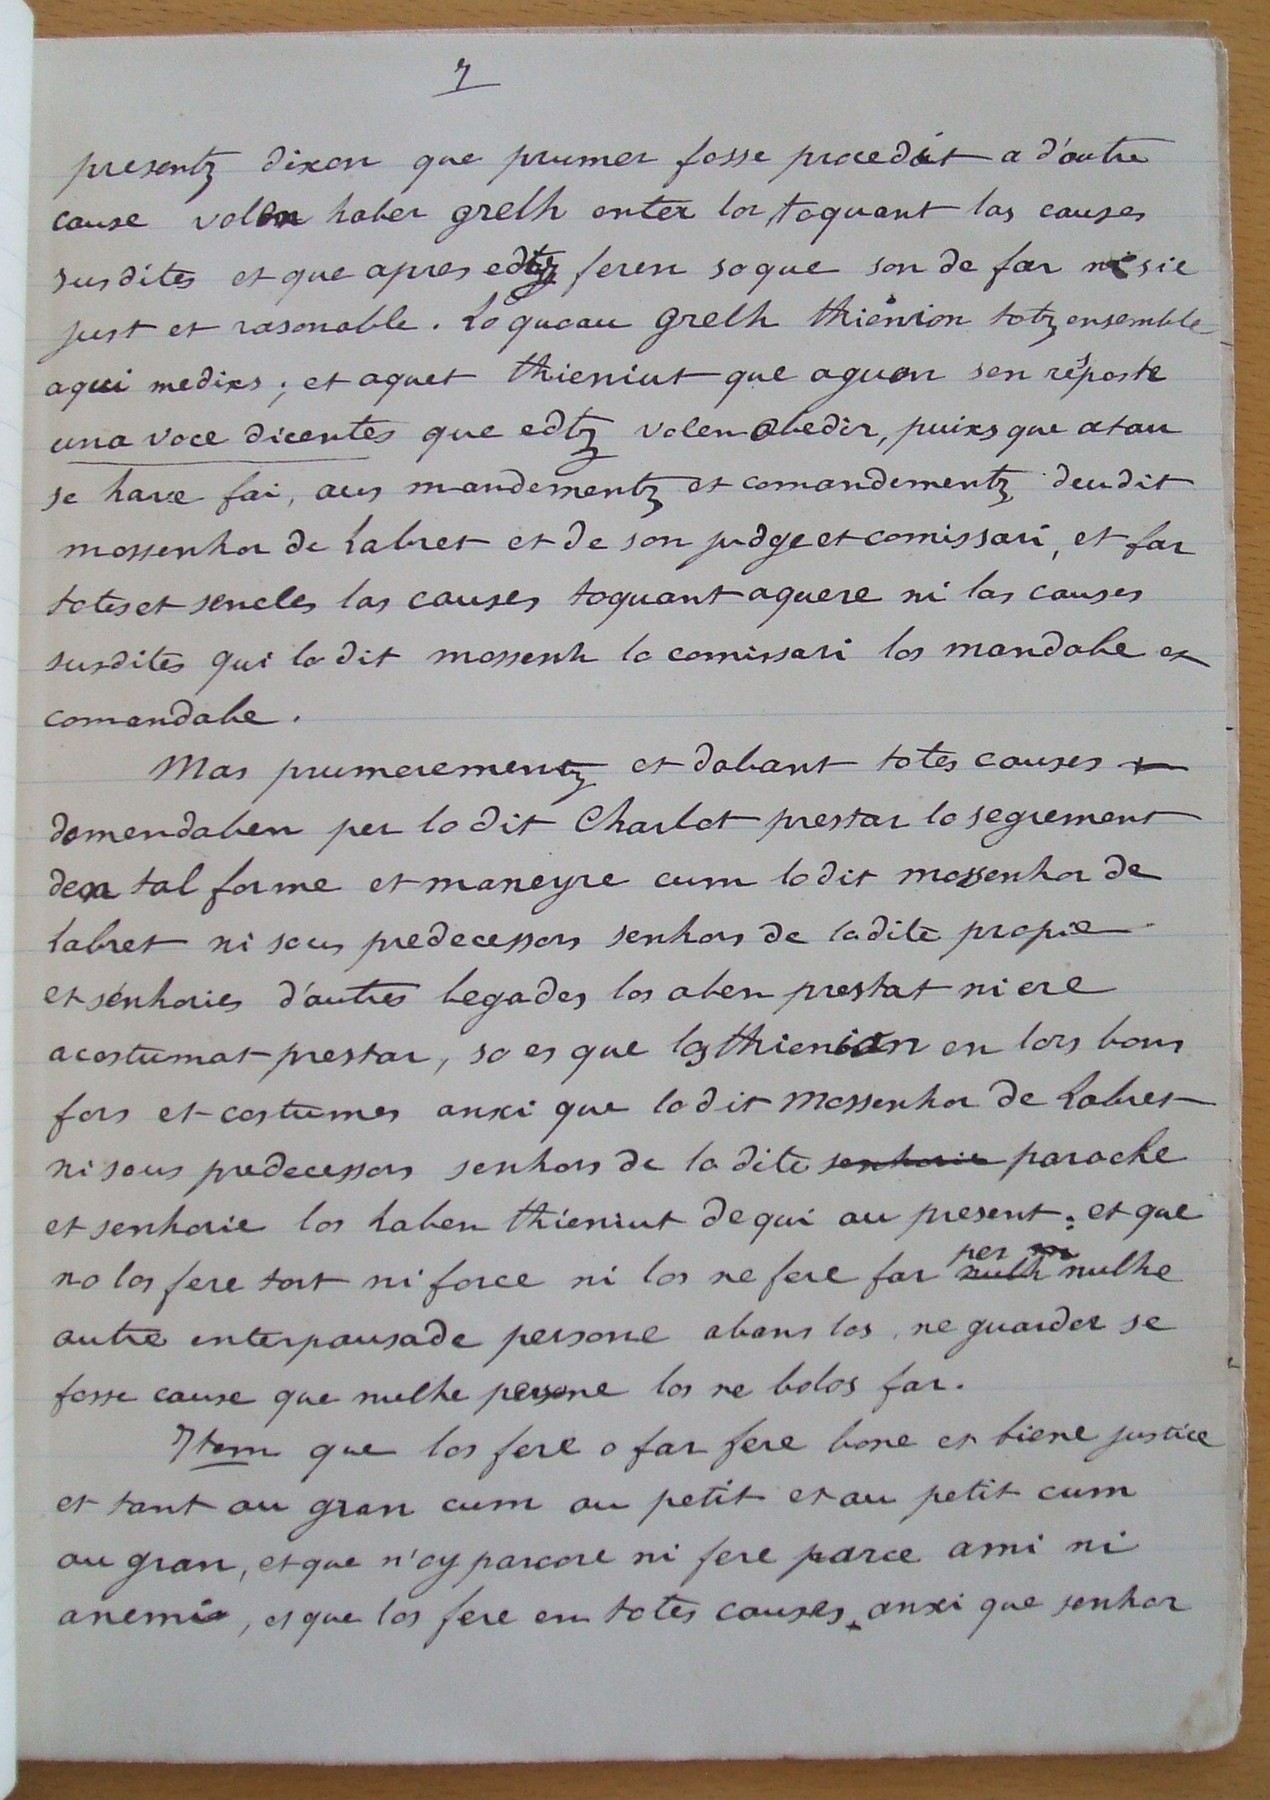 7
presentz dixon que prumer fosse procedit a d'autre
cause volen haber grelh enter lor, toquant las causes
susdites et que apres edtz feren so que son de far ni sie
just et rasonable. Lo quoau grelh thienion totz ensemble
aqui medixs; et aquet thieniut que aguon son resposte
una voce dicentes que edtz volen obedir, puixs que atau
se have fai, aus mandementz et comandementz deudit
mossenhor de Labret et de son judge et comissari, et far
totes et sencles las causes toquant aquere ni las causes
susdites qui lo dit mossenh lo comissari los mandabe et
comendabe.
Mas prumerementz et dabant totes causes
domendaben per lo dit Charlot prestar lo segrement
den tal forme et maneyre cum lo dit mossenhor de
Labret ni sous predecessors senhors de la dite propie
et senhories d'autres begades los aben prestat ni ere
acostumat prestar, so es que los thienian en lors bons
fors et costumes anxi que lo dit Mossenhor de Labret
ni sous predecessors senhors de la dite senhorie paroche
et senhorie los haben thieniut de qui au present: et que
no los fere tort ni force ni los ne fere far per nulhe
autre enterpausade persone abans los ne guarder se
fosse cause que nulhe persone los ne bolos far.
Item que los fere o far fere bone et biene justice
et tant au gran cum au petit et au petit cum
au gran, et que n'oy parcore ni fere parce ami ni
anemic, et que los fere en totes causes anxi que senhor